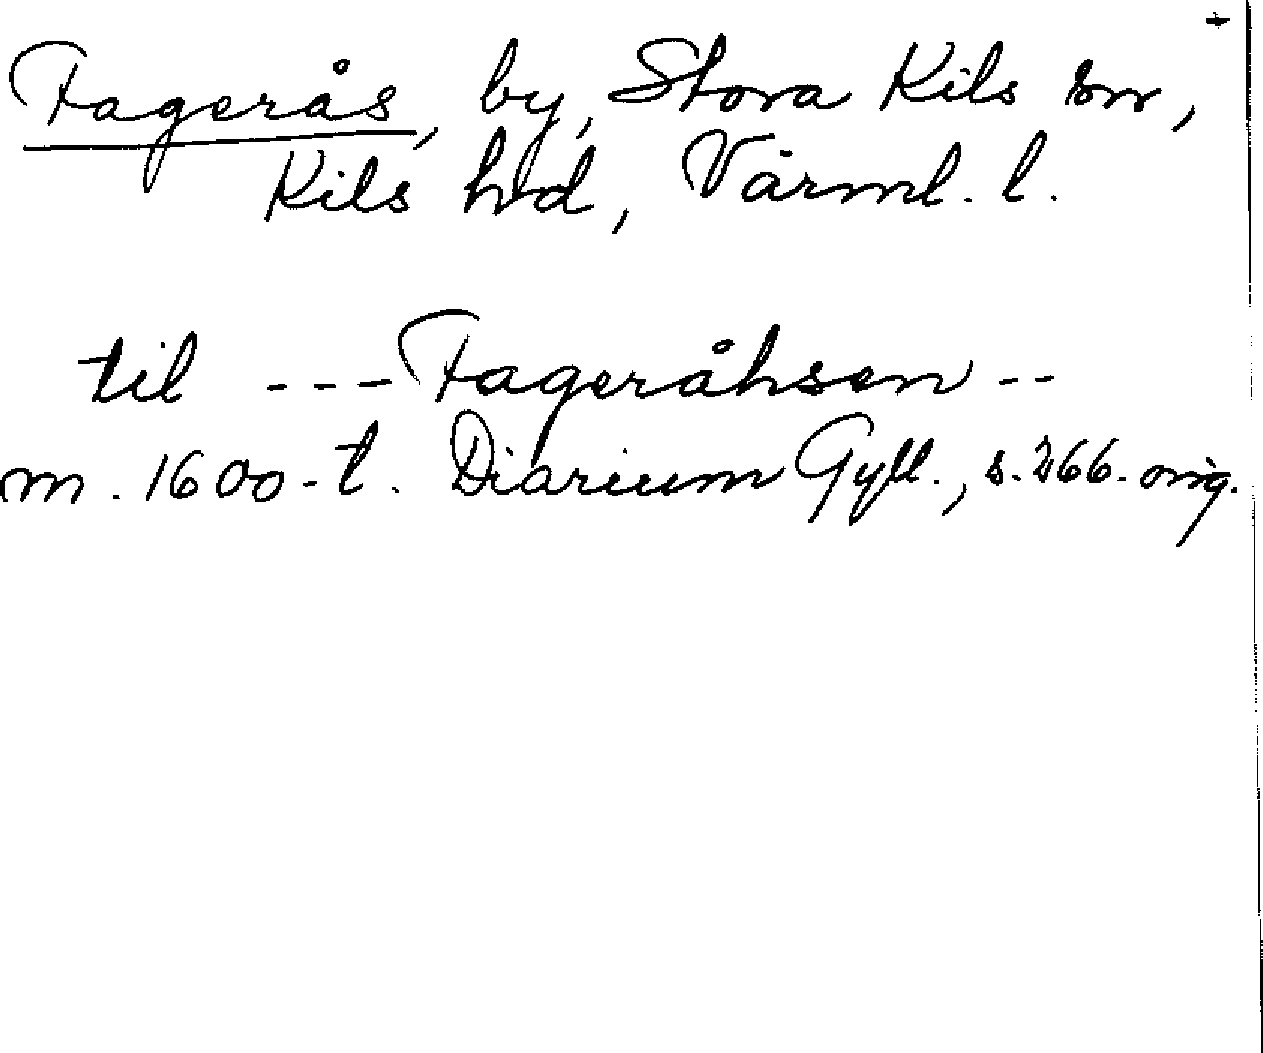 +
Fagerås, by, Stora Kils sn,
Kils hd, Värml. l.
til --- Fageråhsen --
m. 1600-t. Diarium Gyll., s. 266. orig.